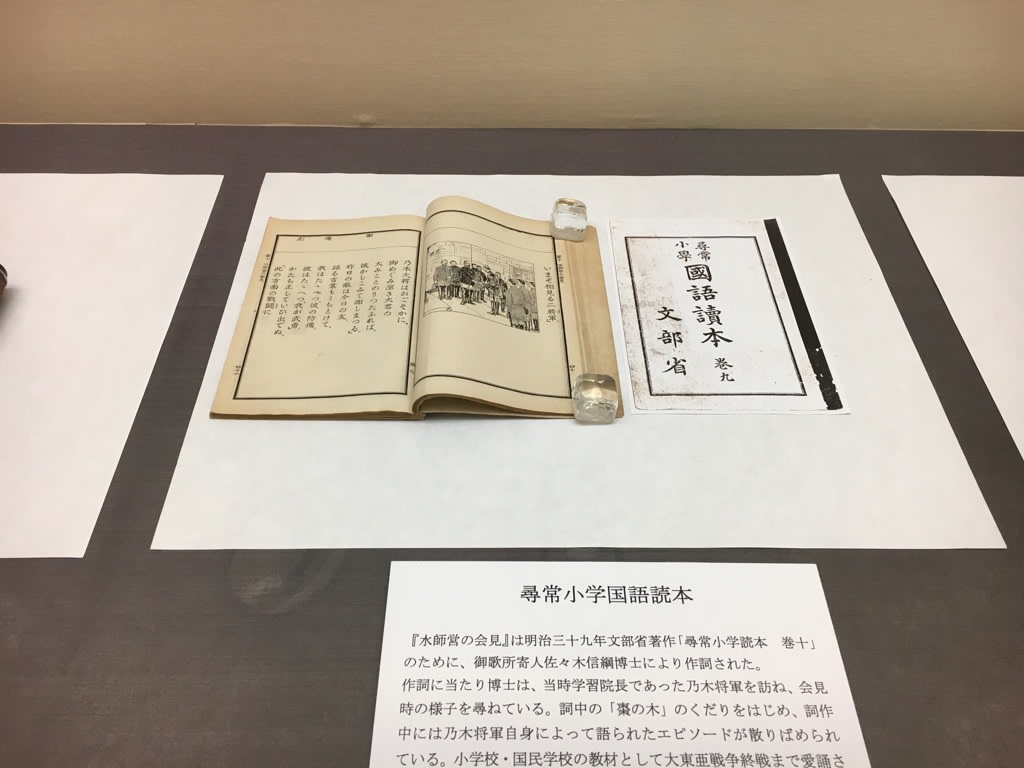 いまぞ相見る二將軍。
乃木大將はおごそかに、
御めぐみ深き大君の
大みことのりつたふれば、
彼かしこみて謝しまつる。
昨日の敵は今日の友、
語る言葉もうちとけて、
我はたゝへつ、彼の防備。
彼はたゝへつ、我が武勇。
かたち正していひ出でぬ、
『此の方面の戰鬪に
尋常
小學
國語讀本 巻九
文部省
尋常小学国語読本
『水師営の会見』は明治三十九年文部省著作「尋常小学読本　巻十」
のために、御歌所寄人佐々木信綱博士により作詞された。
作詞に当たり博士は、当時学習院長であった乃木将軍を訪ね、会見
時の様子を尋ねている。詞中の「棗の木」のくだりをはじめ、詞作
中には乃木将軍自身によって語られたエピソードが散りばめられ
ている。小学校・国民学校の教材として大東亜戦争終戦まで愛誦さ